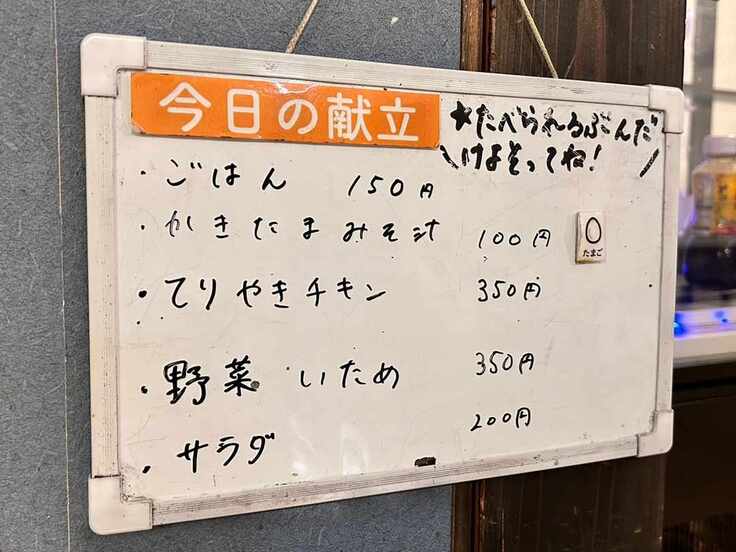 今日の献立
★たべられるぶんだ
けよそってね!
・ごはん 150円
・かきたまみそ汁 100円
たまご
・てりやきチキン 350円
・野菜いため 350円
・サラダ 200円